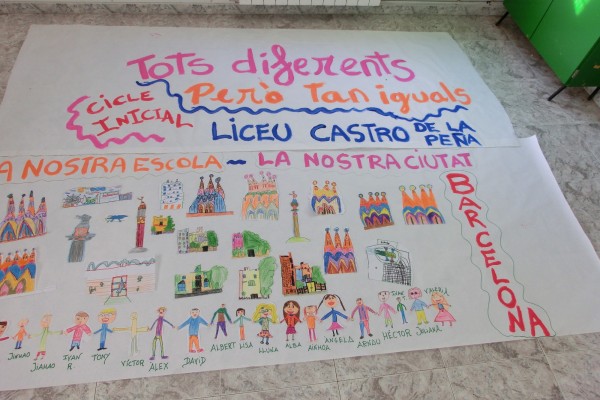 Tots diferents
Però Tan iguals
CICLE
INICIAL
LICEU CASTRO DE LA
PEÑA
A NOSTRA ESCOLA ~ LA NOSTRA CIUTAT
BARCELONA
JINHAO
JIAHAO
IVAN
R
TONY
VÍCTOR
ALEX
DAVID
ALBERT
LISA
LLUNA
ALBA
AINHOA
ANGELA
HÉCTOR
JULIANA
VALERIA